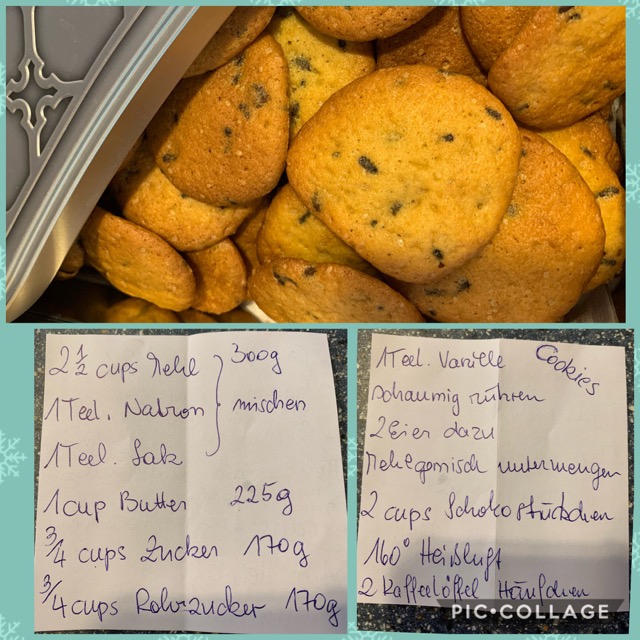 2 1/2 cups Mehl } 300g
1 Teel. Natron } mischen
1 Teel. Salz
1 cup Butter 225g
3/4 cups Zucker 170g
3/4 cups Rohrzucker 170g
Cookies
1 Teel. Vanille
schaumig rühren
2 Eier dazu
Mehlgemisch untermengen
2 cups Schokostückchen
160° Heißluft
2 Kaffeelöffel Häufchen
PIC•COLLAGE